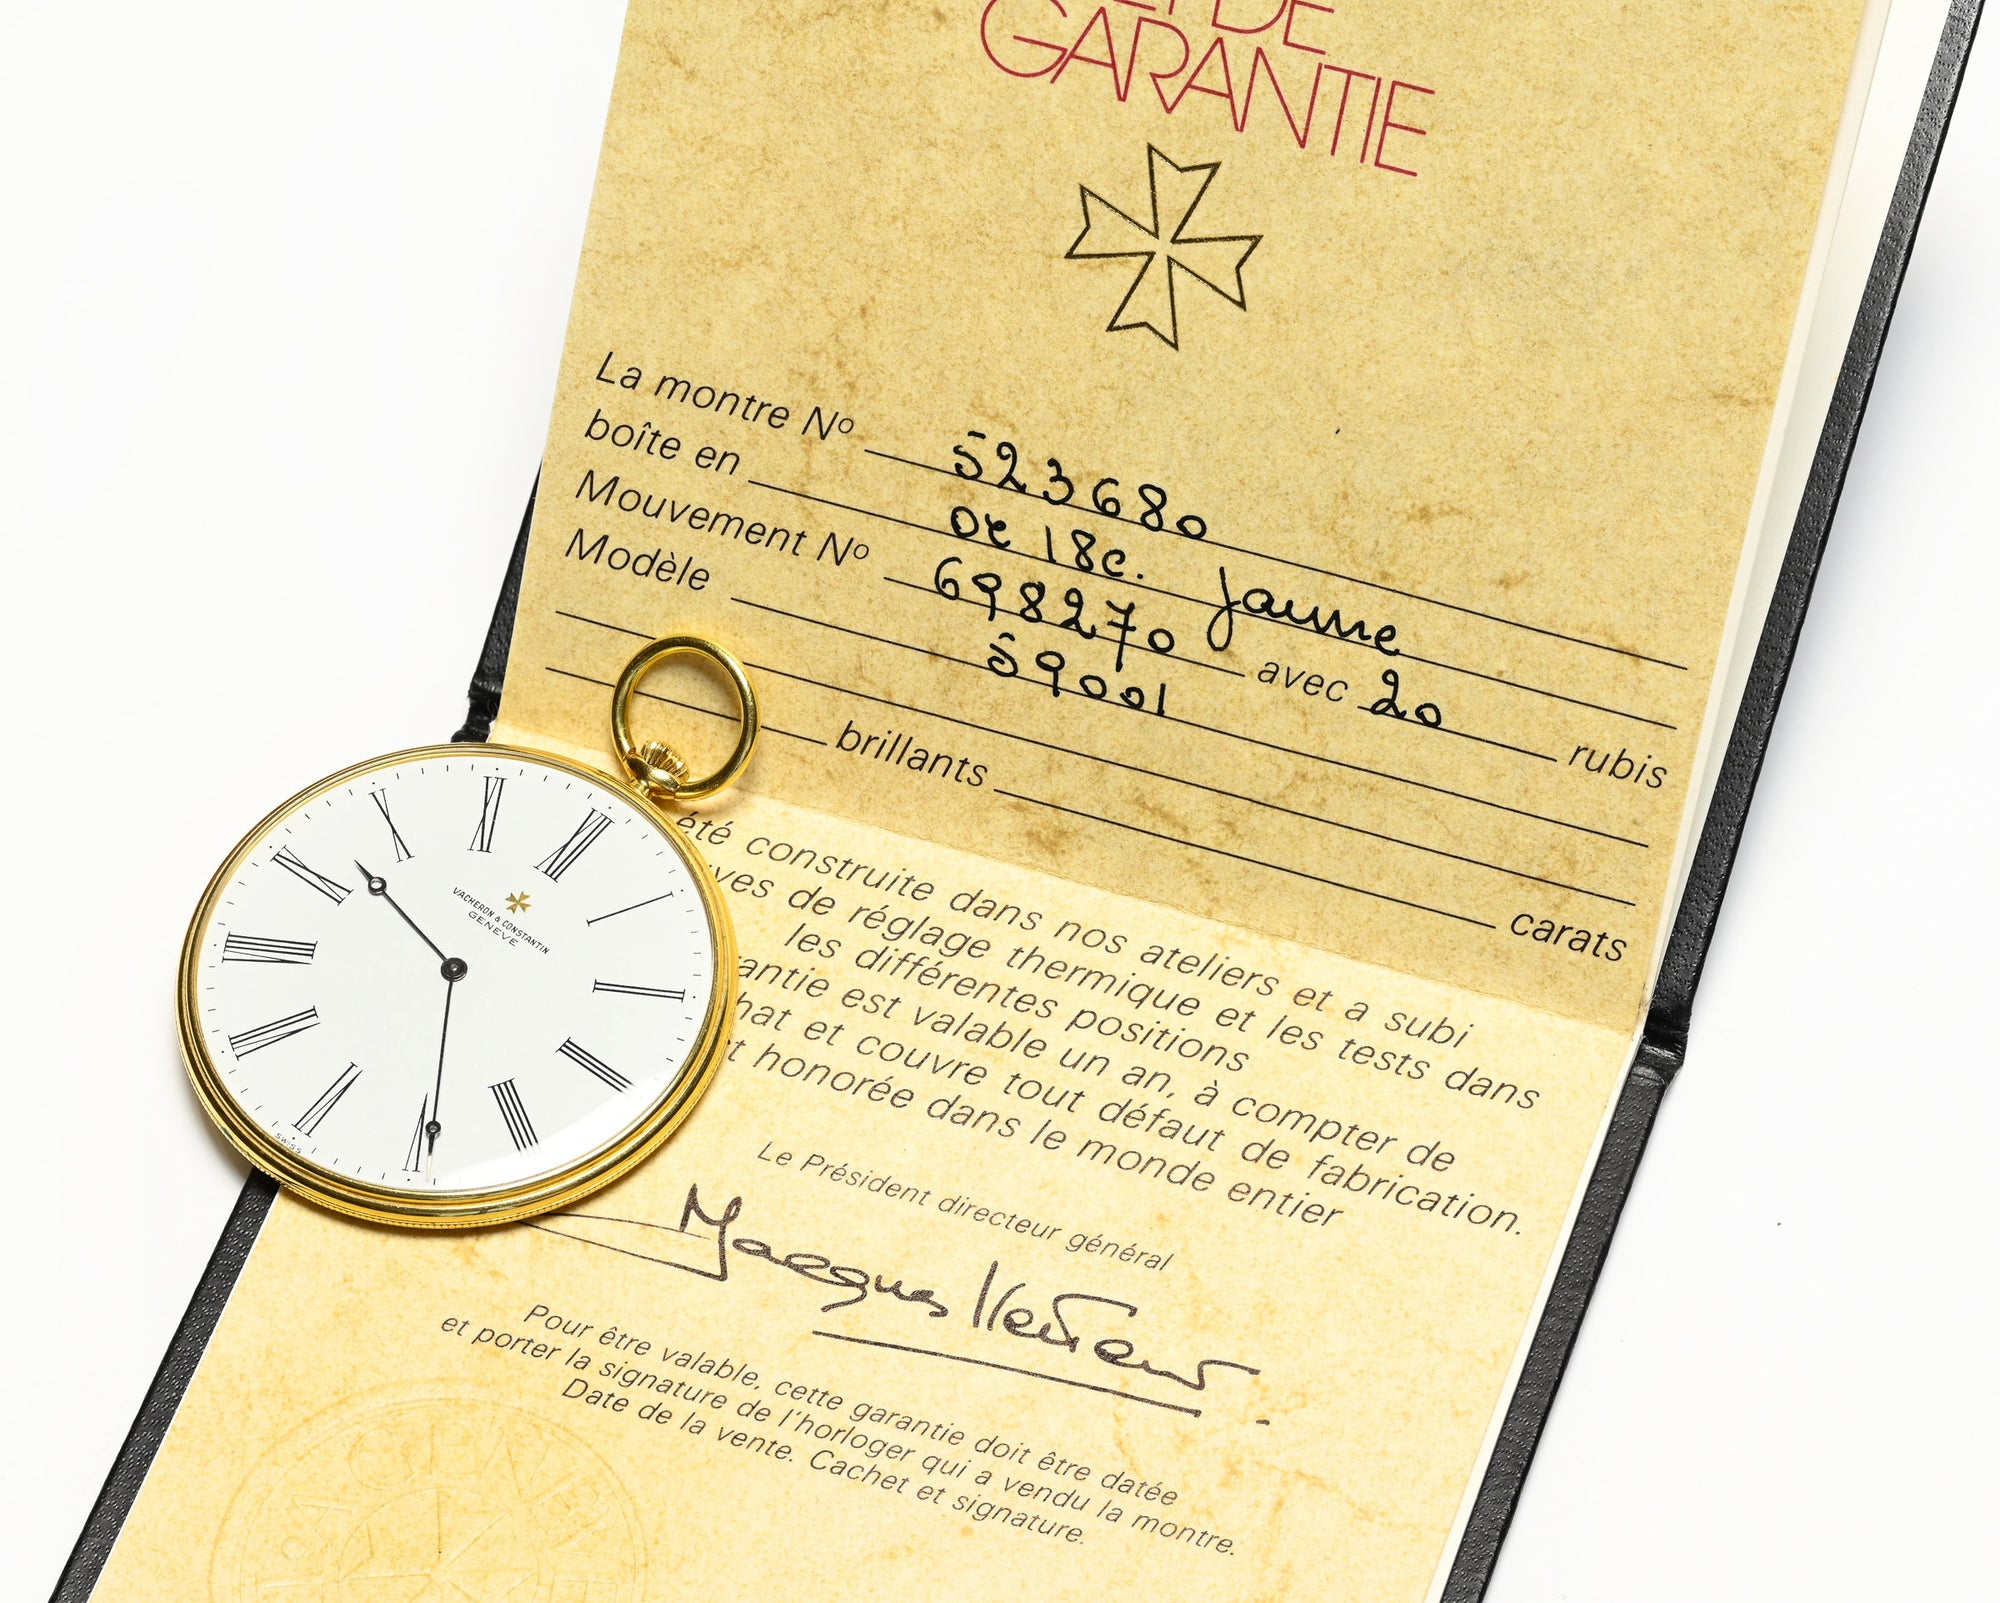 DE
GARANTIE
La montre Nº 523680
boîte en or 18c. jaune
Mouvement Nº 698270 avec 20 rubis
Modèle 59001
brillants carats
été construite dans nos ateliers et a subi
ves de réglage thermique et les tests dans
les différentes positions
antie est valable un an, à compter de
hat et couvre tout défaut de fabrication.
t honorée dans le monde entier
Le Président directeur général
Jacques Ketterer
Pour être valable, cette garantie doit être datée
et porter la signature de l'horloger qui a vendu la montre.
Date de la vente. Cachet et signature.
GENEVE
XII
I
II
III
IIII
V
VI
VII
VIII
IX
X
XI
VACHERON & CONSTANTIN
GENEVE
SWISS